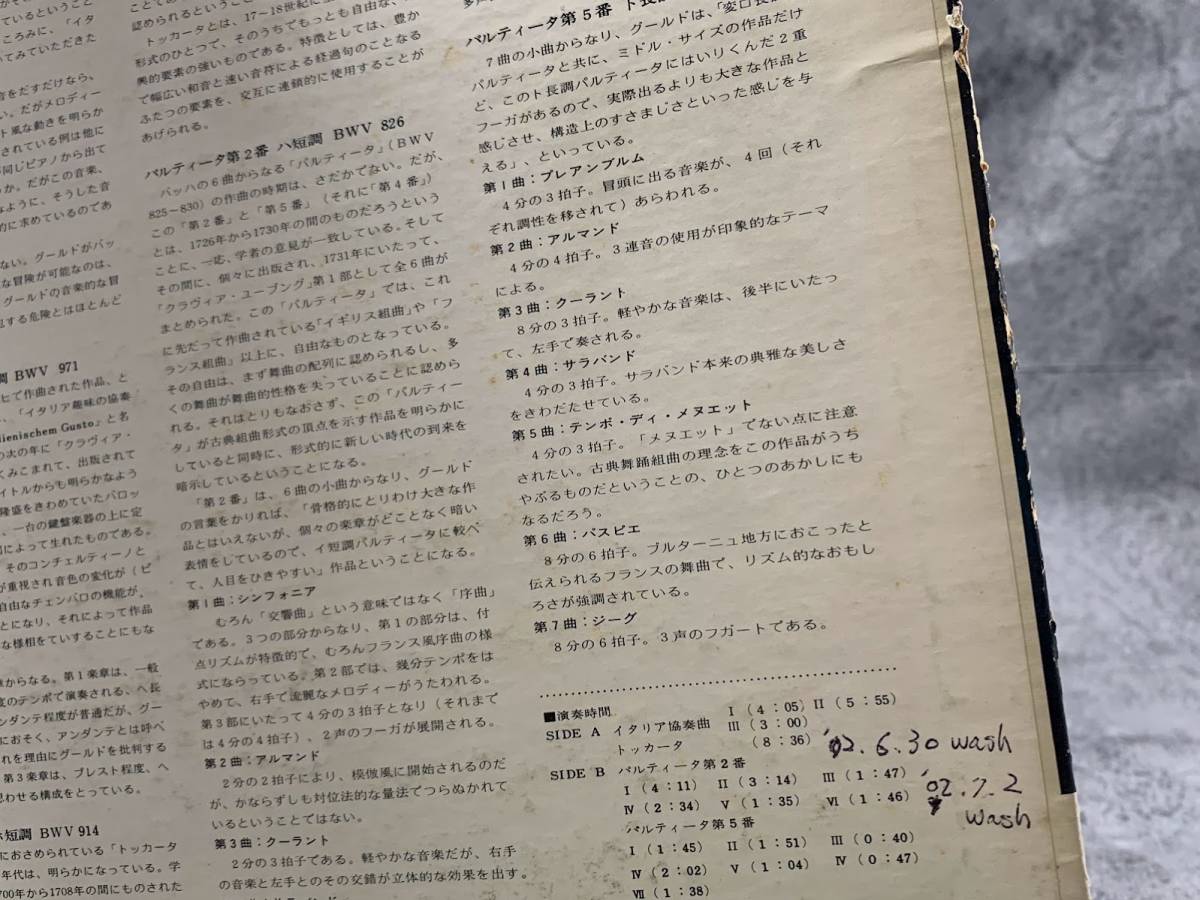 ているということ
「イタ
ころみに、
てみていただきた
音をだすだけなら、
い。だがメロディー
ト風な動きを明らか
されている例は他に
同じピアノから出て
か。だがこの音楽、
なように、そうした音
的に求めているのであ
ない。グールドがバッ
な冒険が可能なのは、
グールドの音楽的な冒
する危険とはほとんど
調 BWV 971
ヒで作曲された作品、と
「イタリア趣味の協奏
lienischem Gusto」と名
の次の年に「クラヴィア・
くみこまれて、出版されて
イトルからも明らかなよう
隆盛をきわめていたバロッ
、一台の鍵盤楽器の上に定
によって生れたものである。
そのコンチェルティーノと
が重視され音色の変化が(ピ
自由なチェンバロの機能が、
とになり、それによって作品
な様相をていすることにもな
章からなる。第1楽章は、一般
度のテンポで演奏される、ヘ長
ンダンテ程度が普通だが、グー
におそく、アンダンテとは呼べ
れを理由にグールドを批判する
第3楽章は、プレスト程度、ヘ
思わせる構成をとっている。
ホ短調 BWV 914
におさめられている「トッカータ
年代は、明らかになっている。学
700年から1708年の間にものされた
認められるということ
トッカータとは、17〜18世紀に
形式のひとつで、そのうちでもっとも自由な、
奥的要素の強いものである。特徴としては、豊か
で幅広い和音と速い音符による経過句のことなる
ふたつの要素を、交互に連鎖的に使用することが
あげられる。
パルティータ第2番 ハ短調 BWV 826
バッハの6曲からなる「パルティータ」(BWV
825〜830)の作曲の時期は、さだかでない。だが、
この「第2番」と「第5番」(それに「第4番」)
とは、1726年から1730年の間のものだろうという
ことに、一応、学者の意見が一致している。そして
その間に、個々に出版され、1731年にいたって、
「クラヴィア・ユーブング」第1部として全6曲が
まとめられた。この「パルティータ」では、これ
に先だって作曲されている「イギリス組曲」や「フ
ランス組曲」以上に、自由なものとなっている。
その自由は、まず舞曲の配列に認められるし、多
くの舞曲が舞曲的性格を失っていることに認めら
れる。それはとりもなおさず、この「パルティー
タ」が古典組曲形式の頂点を示す作品を明らかに
していると同時に、形式的に新しい時代の到来を
暗示しているということになる。
「第2番」は、6曲の小曲からなり、グールド
の言葉をかりれば、「骨格的にとりわけ大きな作
品とはいえないが、個々の楽章がどことなく暗い
表情をしているので、イ短調パルティータに較べ
て、人目をひきやすい」作品ということになる。
第1曲:シンフォニア
むろん「交響曲」という意味ではなく「序曲」
である。3つの部分からなり、第1の部分は、付
点リズムが特徴的で、むろんフランス風序曲の様
式にならっている。第2部では、幾分テンポをは
やめて、右手で流麗なメロディーがうたわれる。
第3部にいたって4分の3拍子となり(それまで
は4分の4拍子)、2声のフーガが展開される。
第2曲:アルマンド
2分の2拍子により、模倣風に開始されるのだ
が、かならずしも対位法的な量法でつらぬかれて
いるということではない。
第3曲:クーラント
2分の3拍子である。軽やかな音楽だが、右手
の音楽と左手とのその交錯が立体的な効果を出す。
パルティータ第5番 ト長調
7曲の小曲からなり、グールドは、「変ロ長調
パルティータと共に、ミドル・サイズの作品だけ
ど、このト長調パルティータにはいりくんだ2重
フーガがあるので、実際出るよりも大きな作品と
感じさせ、構造上のすさまじさといった感じを与
える」、といっている。
第1曲:プレアンブルム
4分の3拍子。冒頭に出る音楽が、4回(それ
ぞれ調性を移されて)あらわれる。
第2曲:アルマンド
4分の4拍子。3連音の使用が印象的なテーマ
による。
第3曲:クーラント
8分の3拍子。軽やかな音楽は、後半にいたっ
て、左手で奏される。
第4曲:サラバンド
4分の3拍子。サラバンド本来の典雅な美しさ
をきわだたせている。
第5曲:テンポ・ディ・メヌエット
4分の3拍子。「メヌエット」でない点に注意
されたい。古典舞踊組曲の理念をこの作品がうち
やぶるものだということの、ひとつのあかしにも
なるだろう。
第6曲:パスピエ
8分の6拍子。ブルターニュ地方におこったと
伝えられるフランスの舞曲で、リズム的なおもし
ろさが強調されている。
第7曲:ジーグ
8分の6拍子。3声のフガートである。
■演奏時間
SIDE A イタリア協奏曲 Ⅰ(4:05) Ⅱ(5:55)
Ⅲ(3:00)
トッカータ (8:36)
SIDE B パルティータ第2番
Ⅰ(4:11) Ⅱ(3:14) Ⅲ(1:47)
Ⅳ(2:34) Ⅴ(1:35) Ⅵ(1:46)
パルティータ第5番
Ⅰ(1:45) Ⅱ(1:51) Ⅲ(0:40)
Ⅳ(2:02) Ⅴ(1:04) Ⅳ(0:47)
Ⅶ(1:38)
'02.6.30 wash
'02.7.2
wash